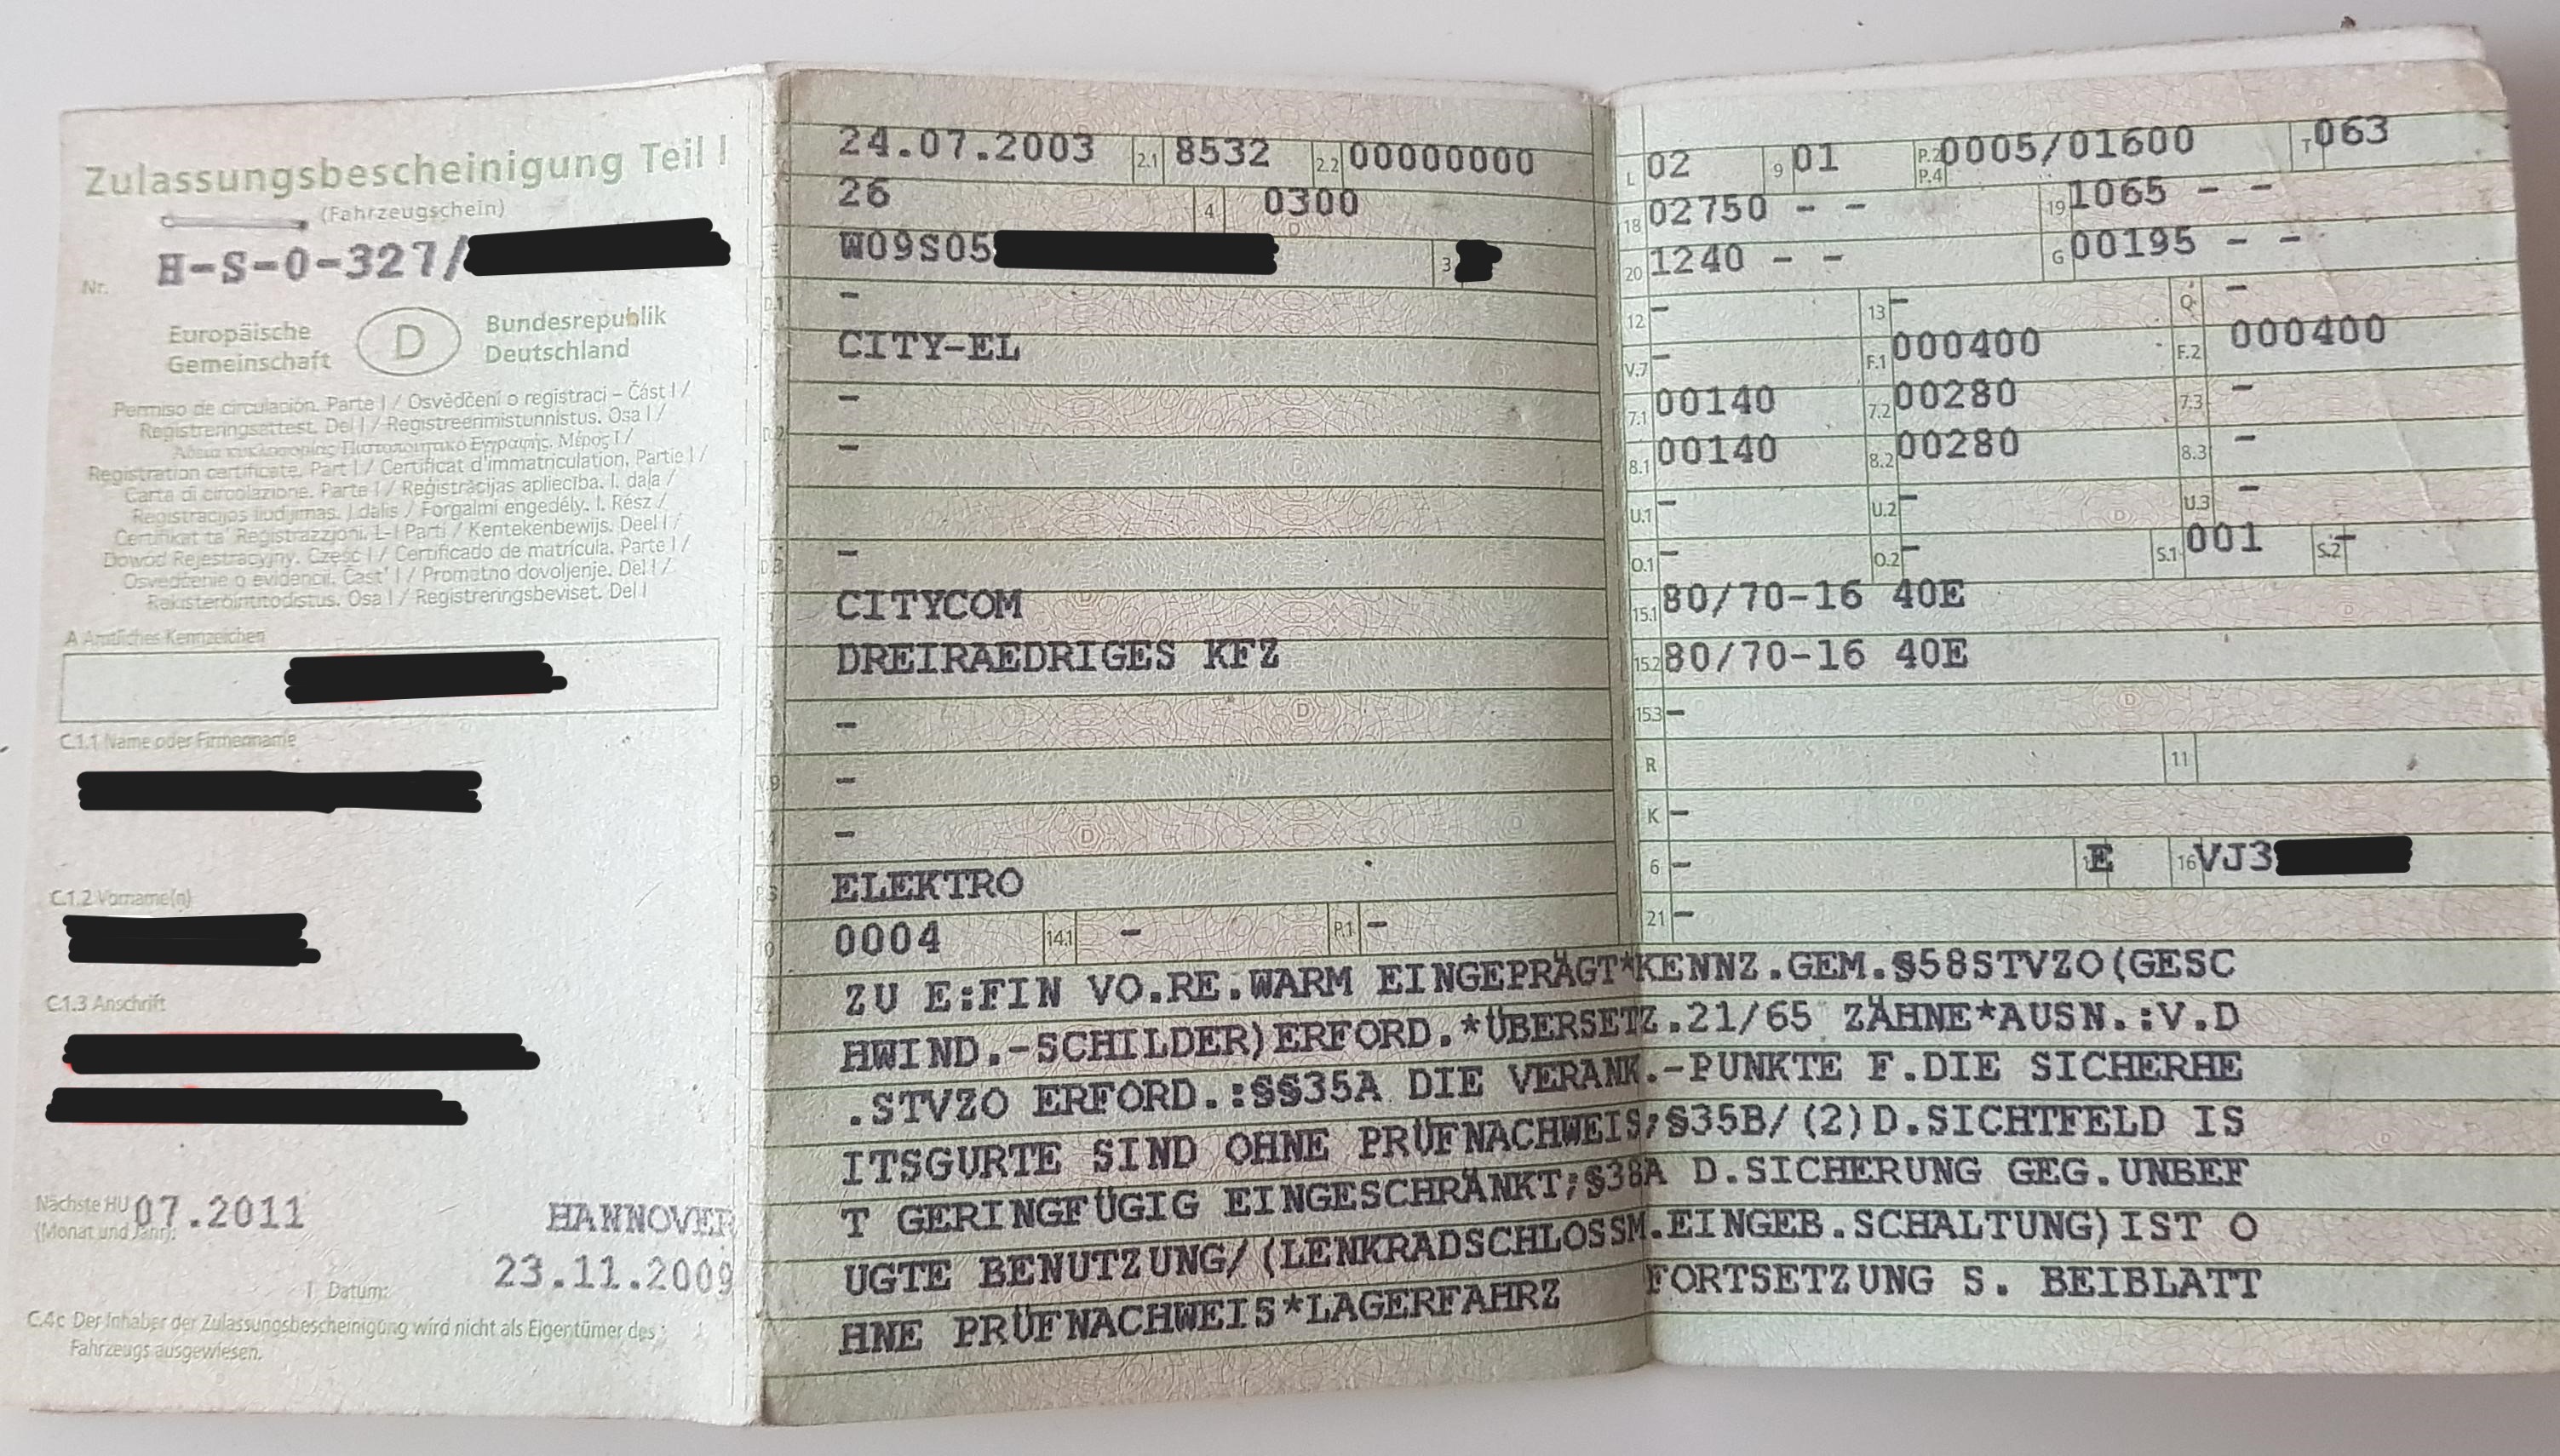 Zulassungsbescheinigung Teil I
(Fahrzeugschein)
Nr. H-S-0-327/
Europäische Gemeinschaft
D
Bundesrepublik Deutschland
Permiso de circulación. Parte I / Osvědčení o registraci – Část I /
Registreringsattest. Del I / Registreerimistunnistus. Osa I /
Άδεια κυκλοφορίας Πιστοποιητικό Εγγραφής. Μέρος I /
Registration certificate. Part I / Certificat d'immatriculation. Partie I /
Carta di circolazione. Parte I / Reģistrācijas apliecība. I. daļa /
Registracijos liudijimas. I dalis / Forgalmi engedély. I. Rész /
Ċertifikat ta' Reġistrazzjoni. L-I Parti / Kentekenbewijs. Deel I /
Dowód Rejestracyjny. Część I / Certificado de matrícula. Parte I /
Osvedčenie o evidencii. Časť I / Prometno dovoljenje. Del I /
Rekisteröintitodistus. Osa I / Registreringsbeviset. Del I
A Amtliches Kennzeichen
C.1.1 Name oder Firmenname
C.1.2 Vorname(n)
C.1.3 Anschrift
Nächste HU (Monat und Jahr): 07.2011
HANNOVER
I Datum: 23.11.2009
C.4c Der Inhaber der Zulassungsbescheinigung wird nicht als Eigentümer des
Fahrzeugs ausgewiesen.
24.07.2003 2.1 8532 2.2 00000000
26 4 0300
W09S05 3
D.1 -
CITY-EL
-
D.2 -
D.3 -
CITYCOM
DREIRAEDRIGES KFZ
-
V.9 -
-
P.3 ELEKTRO
0004 14.1 - P.1 -
L 02 9 01 P.2 P.4 0005/01600 T 063
18 02750 - - 19 1065 - -
20 1240 - - G 00195 - -
12 - 13 - Q -
V.7 - F.1 000400 F.2 000400
7.1 00140 7.2 00280 7.3 -
8.1 00140 8.2 00280 8.3 -
U.1 - U.2 - U.3 -
O.1 - O.2 - S.1 001 S.2 -
15.1 80/70-16 40E
15.2 80/70-16 40E
15.3 -
R 11
K -
6 - E 16 VJ3
21 -
ZU E:FIN VO.RE.WARM EINGEPRÄGT*KENNZ.GEM.§58STVZO(GESC
HWIND.-SCHILDER)ERFORD.*ÜBERSETZ.21/65 ZÄHNE*AUSN.:V.D
.STVZO ERFORD.:§§35A DIE VERANK.-PUNKTE F.DIE SICHERHE
ITSGURTE SIND OHNE PRÜFNACHWEIS;§35B/(2)D.SICHTFELD IS
T GERINGFÜGIG EINGESCHRÄNKT;§38A D.SICHERUNG GEG.UNBEF
UGTE BENUTZUNG/(LENKRADSCHLOSSM.EINGEB.SCHALTUNG)IST O
HNE PRÜFNACHWEIS*LAGERFAHRZ FORTSETZUNG S. BEIBLATT